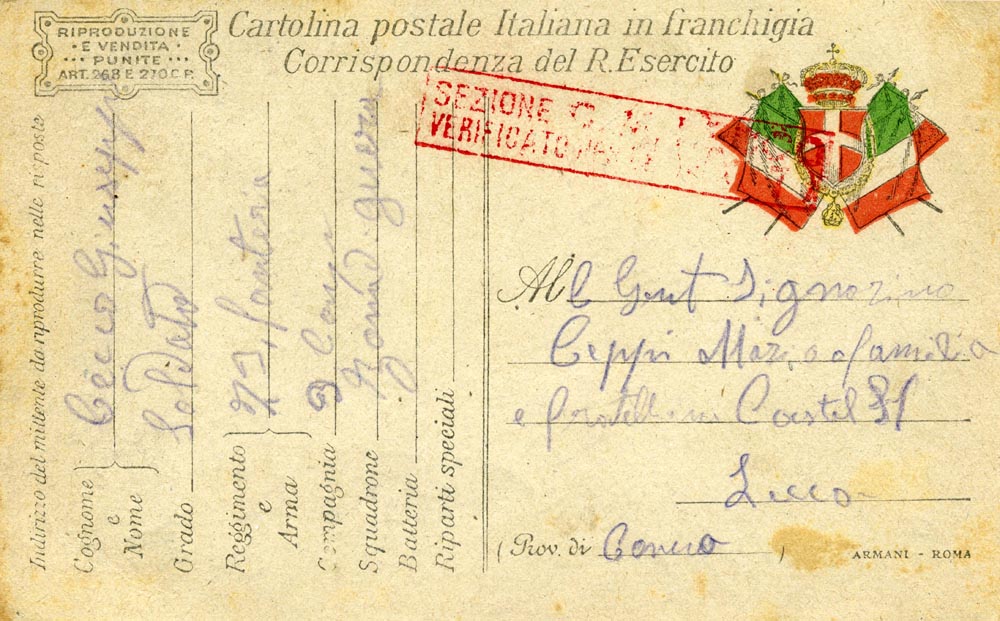 RIPRODUZIONE
E VENDITA
PUNITE
ART. 268 E 270 C.P.
Cartolina postale Italiana in franchigia
Corrispondenza del R. Esercito
SEZIONE
VERIFICATO PER
Indirizzo del mittente da riprodurre nelle risposte
Cognome e Nome
Grado Soldato
Reggimento e Arma 73 fanteria
Compagnia 2 Comp
Squadrone Zona guerra
Batteria
Riparti speciali
Al Gent Signorino
Ceppi Mario famiglia
e fratello Castel
Lecco
(Prov. di Como)
ARMANI - ROMA